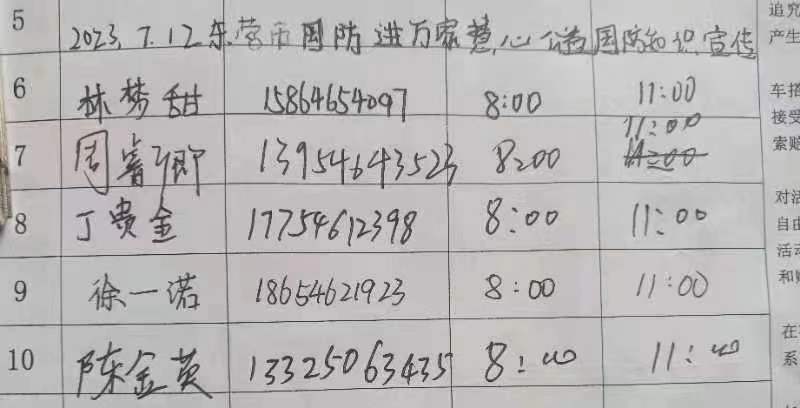 5 2023.7.12东营市国防进万家慧心公益国防知识宣传
6 林梦甜 15864654097 8:00 11:00
11:00
7 周睿卿 13954643523 8:00 11:00
8 丁贵金 17754612398 8:00 11:00
9 徐一诺 18654621923 8:00 11:00
10 陈金英 13325063435 8:00 11:00
追究
产生
车搭
接受
索赔
对活
自由
活动
在
系